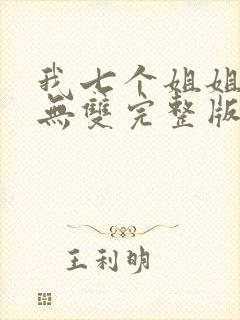 我七个姐姐
無雙完整版
王利明